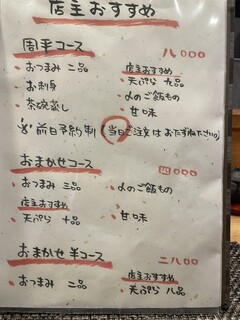 店主おすすめ
周平コース 八〇〇〇
・おつまみ 二品
・お刺身
・茶碗蒸し
店主おすすめ
・天ぷら 九品
・〆のご飯もの
・甘味
※前日予約制(当日ご注文はおたずね下さい。)
おまかせコース 四〇〇〇
・おつまみ 三品
店主おすすめ
・天ぷら 十品
・〆のご飯もの
・甘味
おまかせ半コース 二八〇〇
・おつまみ 二品
店主おすすめ
・天ぷら 八品